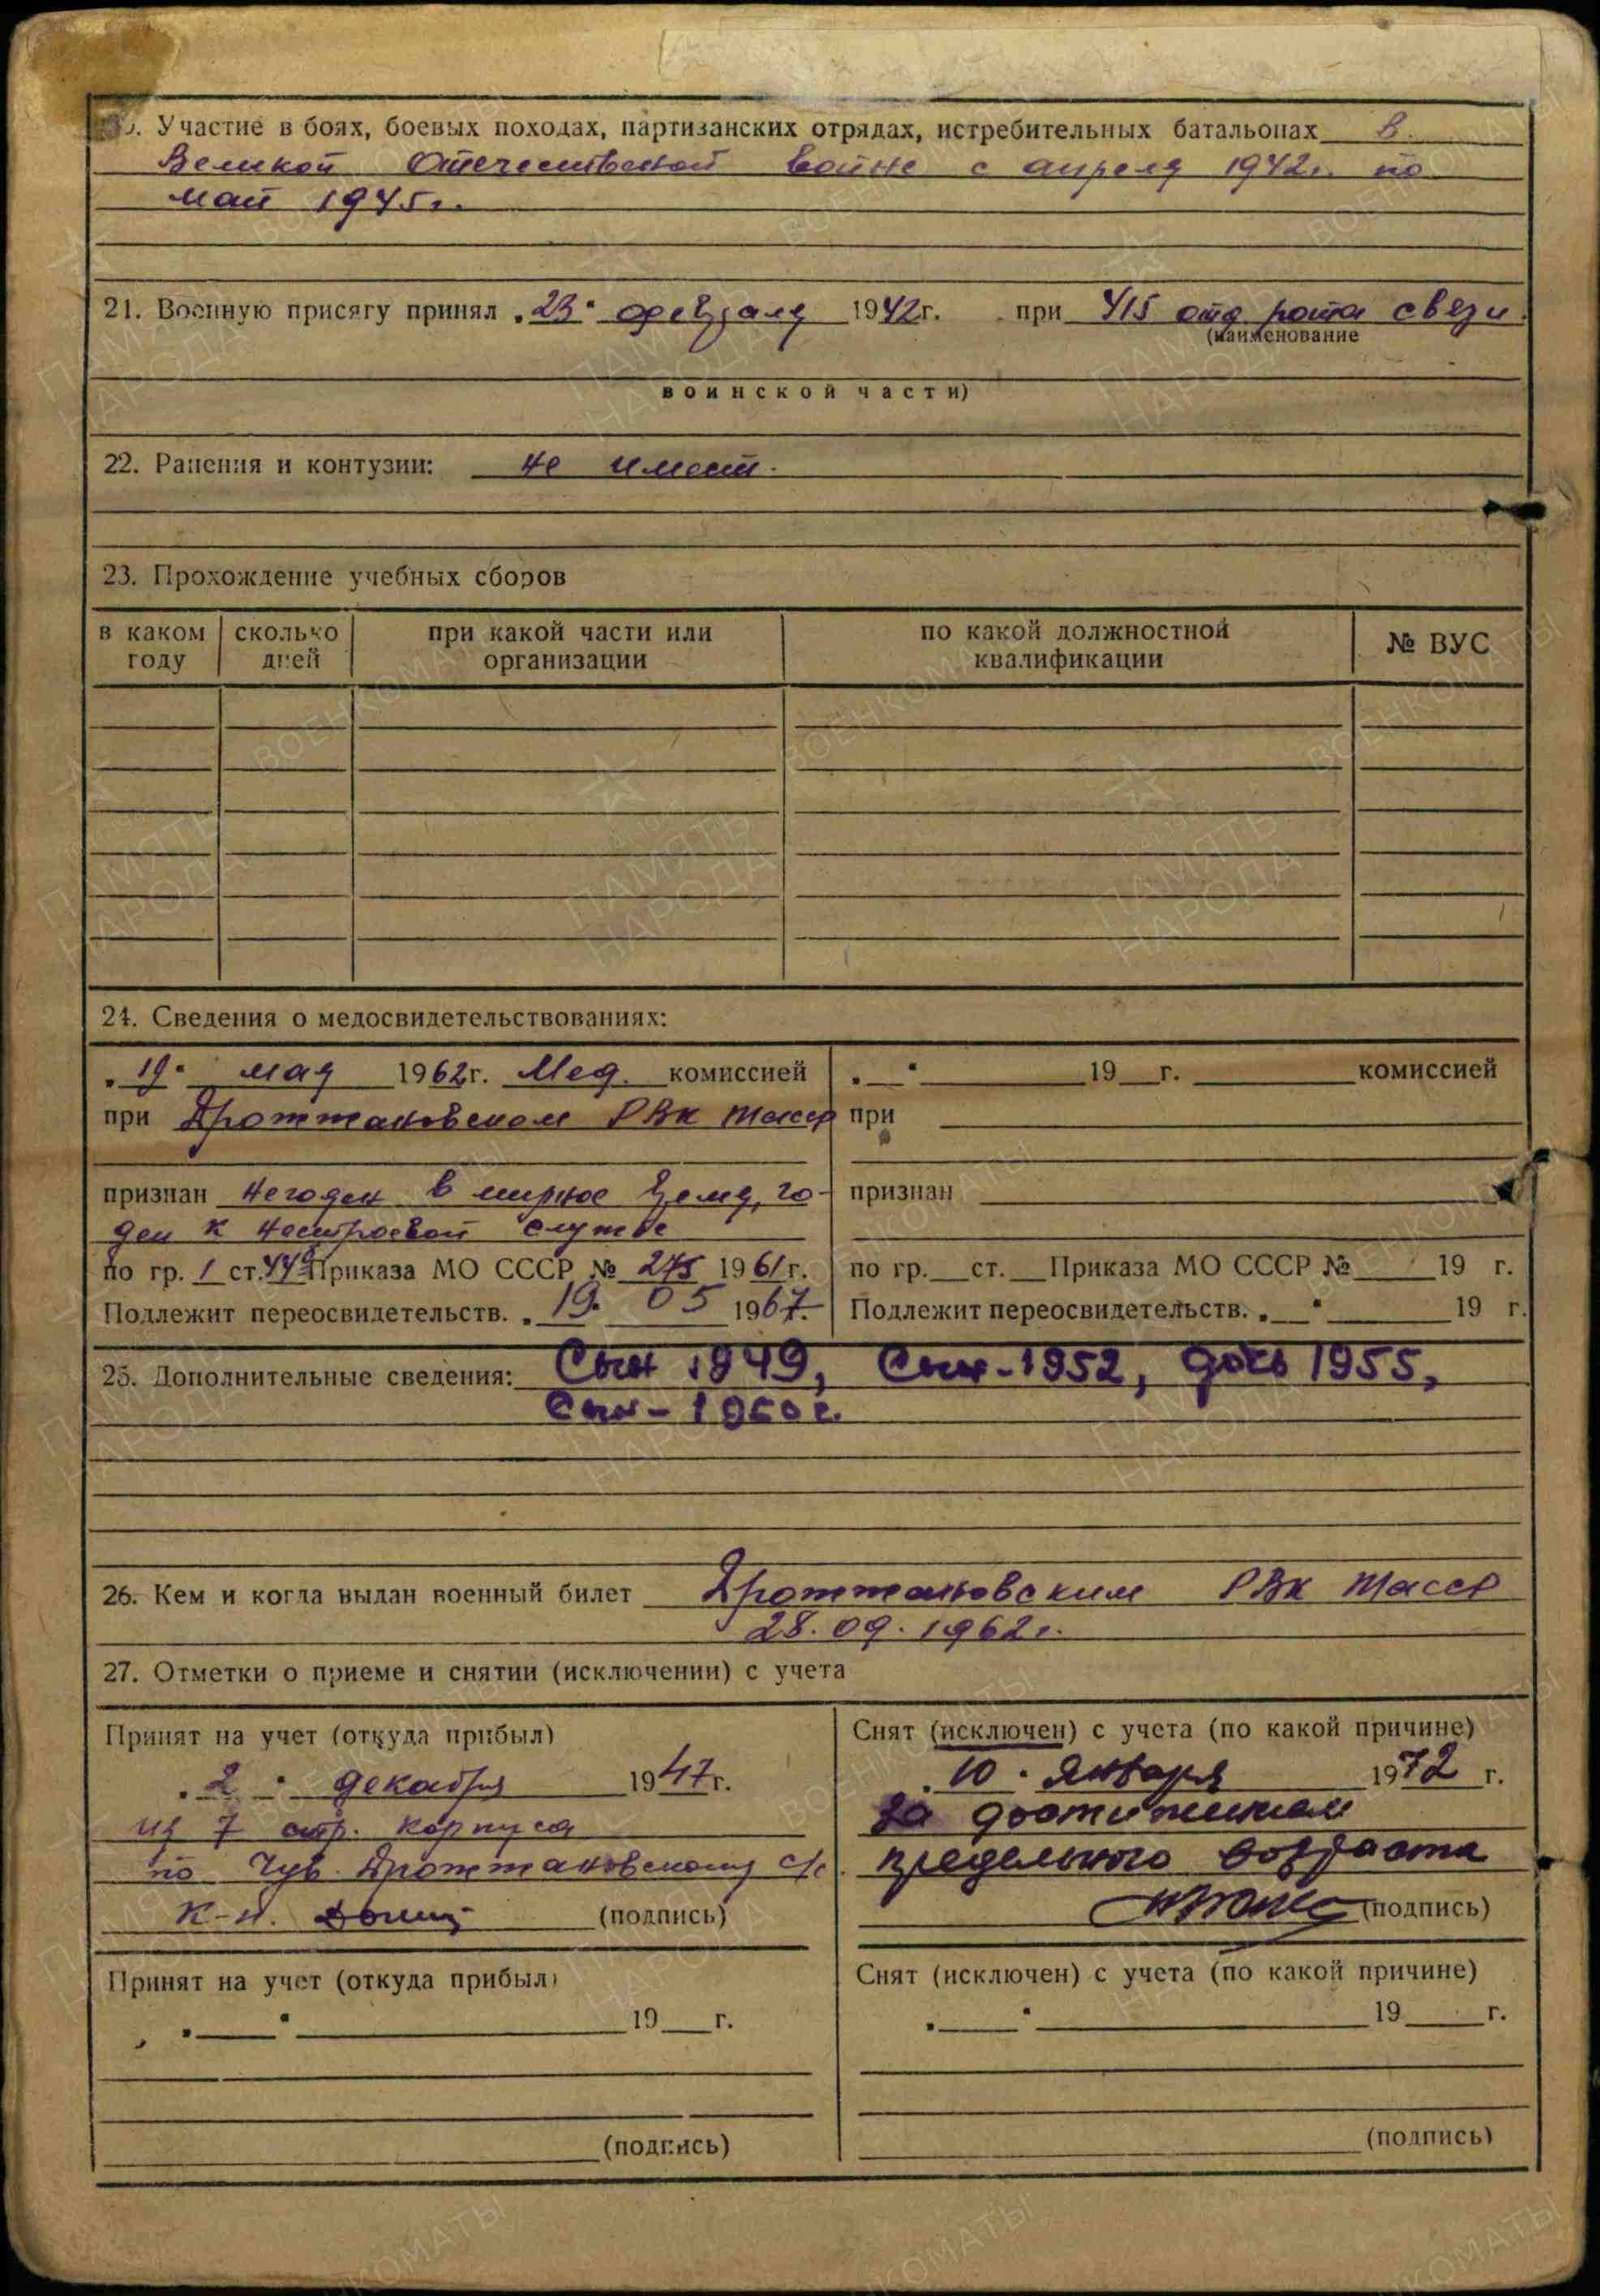 . Участие в боях, боевых походах, партизанских отрядах, истребительных батальонах в
Великой Отечественной войне с апреля 1942г. по
май 1945г.
21. Военную присягу принял „23“ февраля 1942г. при 415 отд рота связи
(наименование
воинской части)
22. Ранения и контузии: не имеет.
23. Прохождение учебных сборов
в каком году сколько дней при какой части или организации по какой должностной квалификации № ВУС
24. Сведения о медосвидетельствованиях:
„19“ мая 1962г. Мед. комиссией
при Дрожжановском РВК ТАССР
признан негоден в мирное время, го-
ден к нестроевой службе
по гр. 1 ст. Приказа МО СССР № 275 1961г.
Подлежит переосвидетельств. „19“ 05 1967г.
„ “ 19 г. комиссией
при
признан
по гр. ст. Приказа МО СССР № 19 г.
Подлежит переосвидетельств. „ “ 19 г.
25. Дополнительные сведения: Сын 1949, Сын-1952, дочь 1955,
Сын-1960г.
26. Кем и когда выдан военный билет Дрожжановским РВК ТАССР
28.09.1962г.
27. Отметки о приеме и снятии (исключении) с учета
Принят на учет (откуда прибыл)
„2“ декабря 1947г.
из 7 стр. корпуса
по Чув. Дрожжановскому с/с.
К-н. (подпись)
Снят (исключен) с учета (по какой причине)
„10“ января 1972 г.
за достижением
предельного возраста
(подпись)
Принят на учет (откуда прибыл)
„ “ 19 г.
(подпись)
Снят (исключен) с учета (по какой причине)
„ “ 19 г.
(подпись)
ПАМЯТЬ НАРОДА
ВОЕНКОМАТЫ